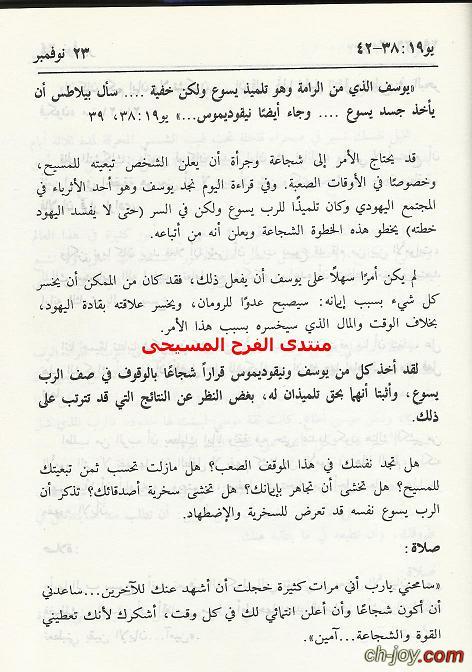 يو١٩ :٣٨-٤٢
٢٣ نوفمبر
«يوسف الذي من الرامة وهو تلميذ يسوع ولكن خفية .... سأل بيلاطس أن
يأخذ جسد يسوع .... وجاء أيضًا نيقوديموس...» يو١٩ :٣٨، ٣٩
قد يحتاج الأمر إلى شجاعة وجرأة أن يعلن الشخص تبعيته للمسيح،
وخصوصًا في الأوقات الصعبة. وفي قراءة اليوم نجد يوسف وهو أحد الأثرياء في
المجتمع اليهودي وكان تلميذًا للرب يسوع ولكن في السر (حتى لا يفسد اليهود
خطته) يخطو هذه الخطوة الشجاعة ويعلن أنه من أتباعه.
لم يكن أمرًا سهلًا على يوسف أن يفعل ذلك، فقد كان من الممكن أن يخسر
كل شيء بسبب إيمانه: سيصبح عدوًا للرومان، ويخسر علاقته بقادة اليهود،
بخلاف الوقت والمال الذي سيخسره بسبب هذا الأمر.
منتدى الفرح المسيحى
لقد أخذ كل من يوسف ونيقوديموس قرارًا شجاعًا بالوقوف في صف الرب
يسوع، وأثبتا أنهما بحق تلميذان له، بغض النظر عن النتائج التي قد تترتب على
ذلك.
هل تجد نفسك في هذا الموقف الصعب؟ هل مازلت تحسب ثمن تبعيتك
للمسيح؟ هل تخشى أن تجاهر بإيمانك؟ هل تخشى سخرية أصدقائك؟ تذكر أن
الرب يسوع نفسه قد تعرض للسخرية والإضطهاد.
صلاة :
«سامحني يارب أني مرات كثيرة خجلت أن أشهد عنك للآخرين...ساعدني
أن أكون شجاعًا وأن أعلن انتمائي لك في كل وقت، أشكرك لأنك تعطيني
القوة والشجاعة...آمين».
ch-joy.com